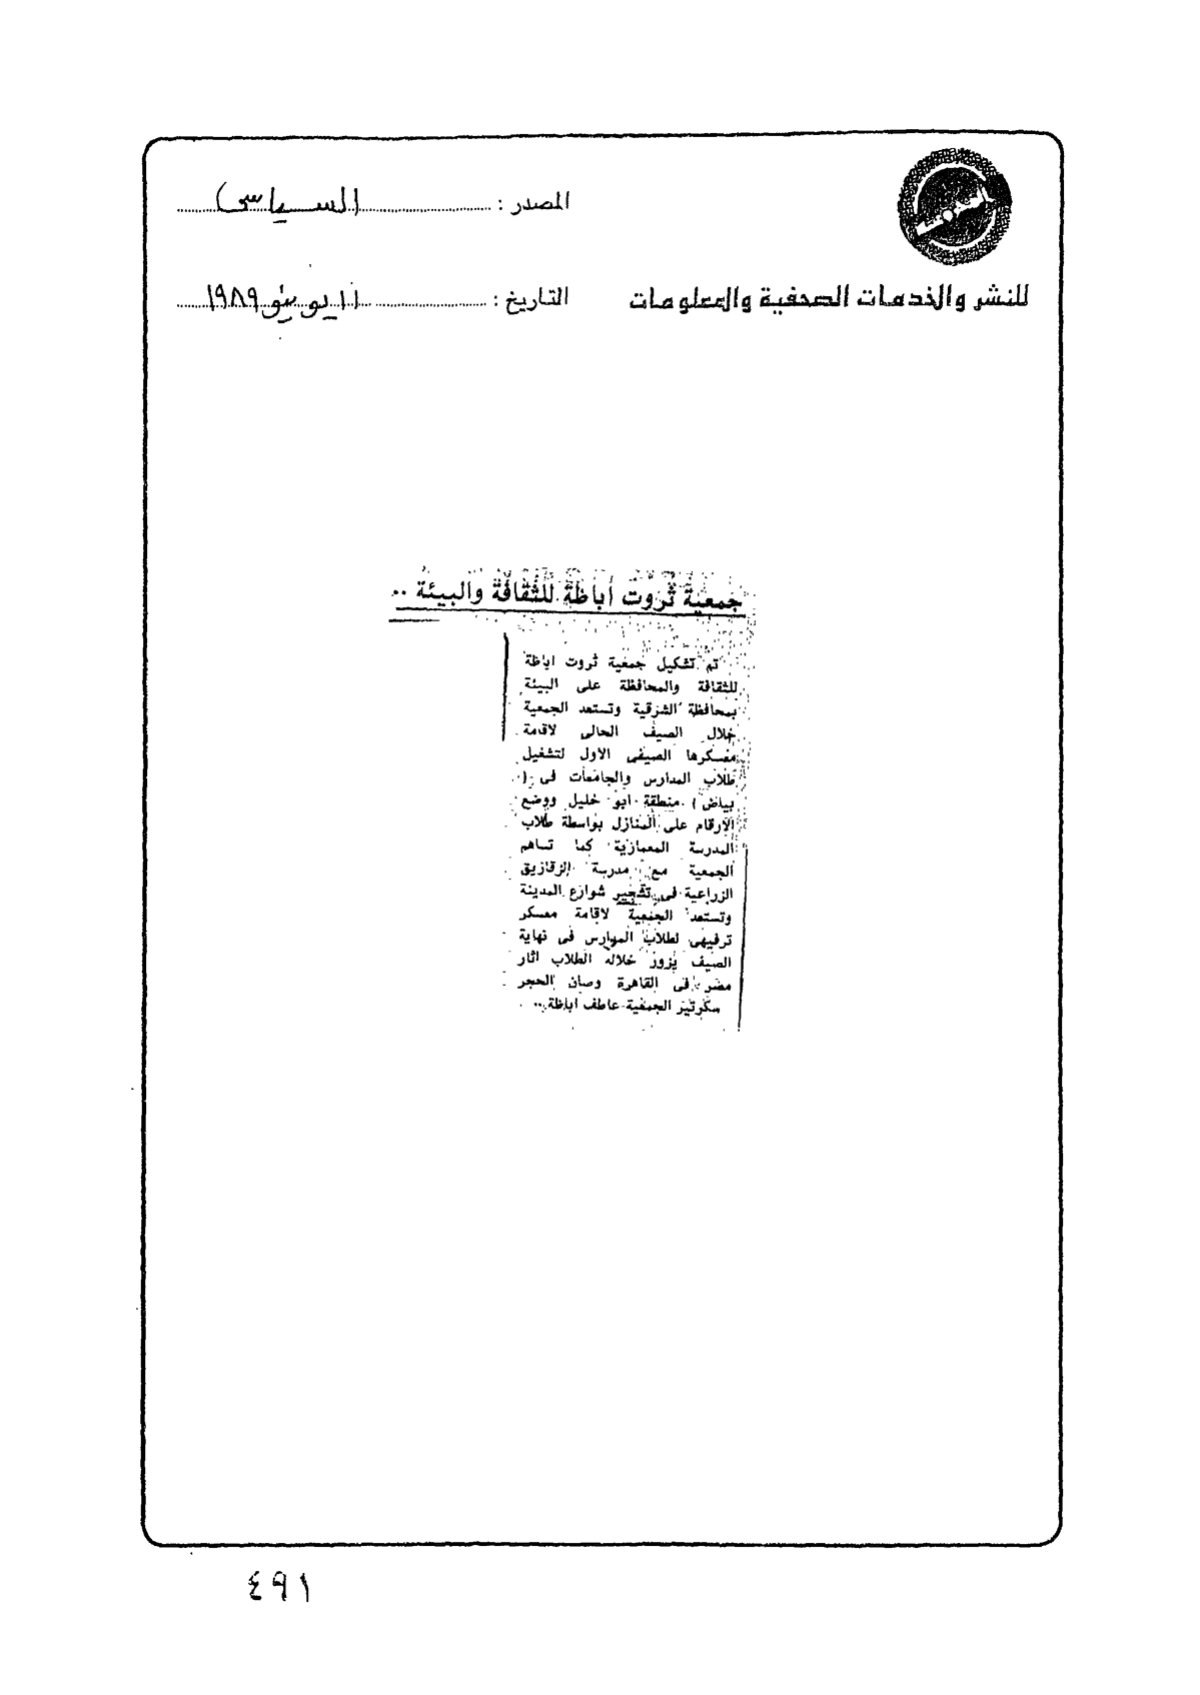 المصدر : السياسى
للنشر والخدمات الصحفية والمعلومات
التاريخ : ١١ يونيو ١٩٨٩
جمعية ثروت أباظة للثقافة والبيئة ..
تم تشكيل جمعية ثروت اباظة
للثقافة والمحافظة على البيئة
بمحافظة الشرقية وتستعد الجمعية
خلال الصيف الحالى لاقامة
معسكرها الصيفى الاول لتشغيل
طلاب المدارس والجامعات فى (
بياض ) منطقة ابو خليل ووضع
الارقام على المنازل بواسطة طلاب
المدرسة المعمارية كما تساهم
الجمعية مع مدرسة الزقازيق
الزراعية فى تشجير شوارع المدينة
وتستعد الجمعية لاقامة معسكر
ترفيهى لطلاب المدارس فى نهاية
الصيف يزور خلاله الطلاب اثار
مصر فى القاهرة وصان الحجر
سكرتير الجمعية عاطف اباظة ..
٤٩١